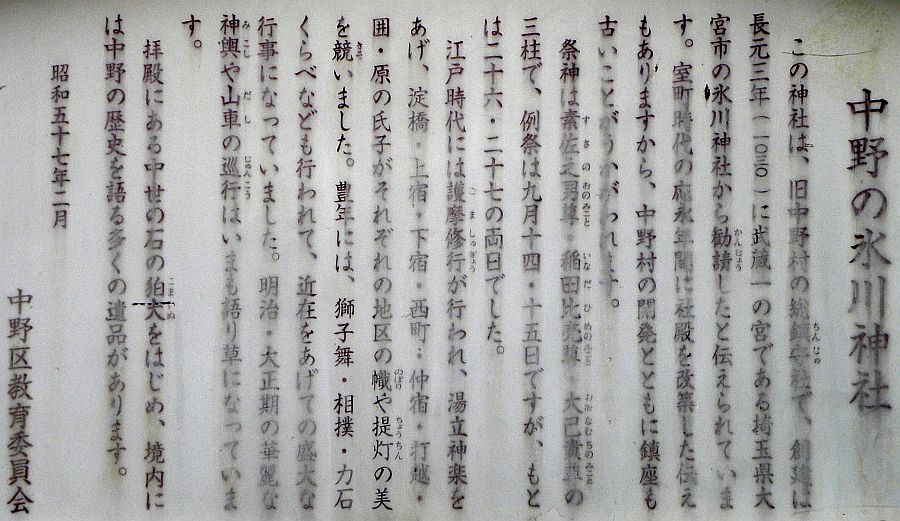 中野の氷川神社
この神社は、旧中野村の総鎮守社で、創建は
長元三年(一〇三〇)に武蔵一の宮である埼玉県大
宮市の氷川神社から勧請したと伝えられていま
す。室町時代の応永年間に社殿を改築した伝え
もありますから、中野村の開発とともに鎮座も
古いことがうかがわれます。
祭神は素佐之男尊・稲田比売尊・大己貴尊の
三柱で、例祭は九月十四・十五日ですが、もと
は二十六・二十七の両日でした。
江戸時代には護摩修行が行われ、湯立神楽を
あげ、淀橋・上宿・下宿・西町・仲宿・打越・
囲・原の氏子がそれぞれの地区の幟や提灯の美
を競いました。豊年には、獅子舞・相撲・力石
くらべなども行われて、近在をあげての盛大な
行事になっていました。明治・大正期の華麗な
神輿や山車の巡行はいまも語り草になっていま
す。
拝殿にある中世の石の狛犬をはじめ、境内に
は中野の歴史を語る多くの遺品があります。
昭和五十七年二月
中野区教育委員会